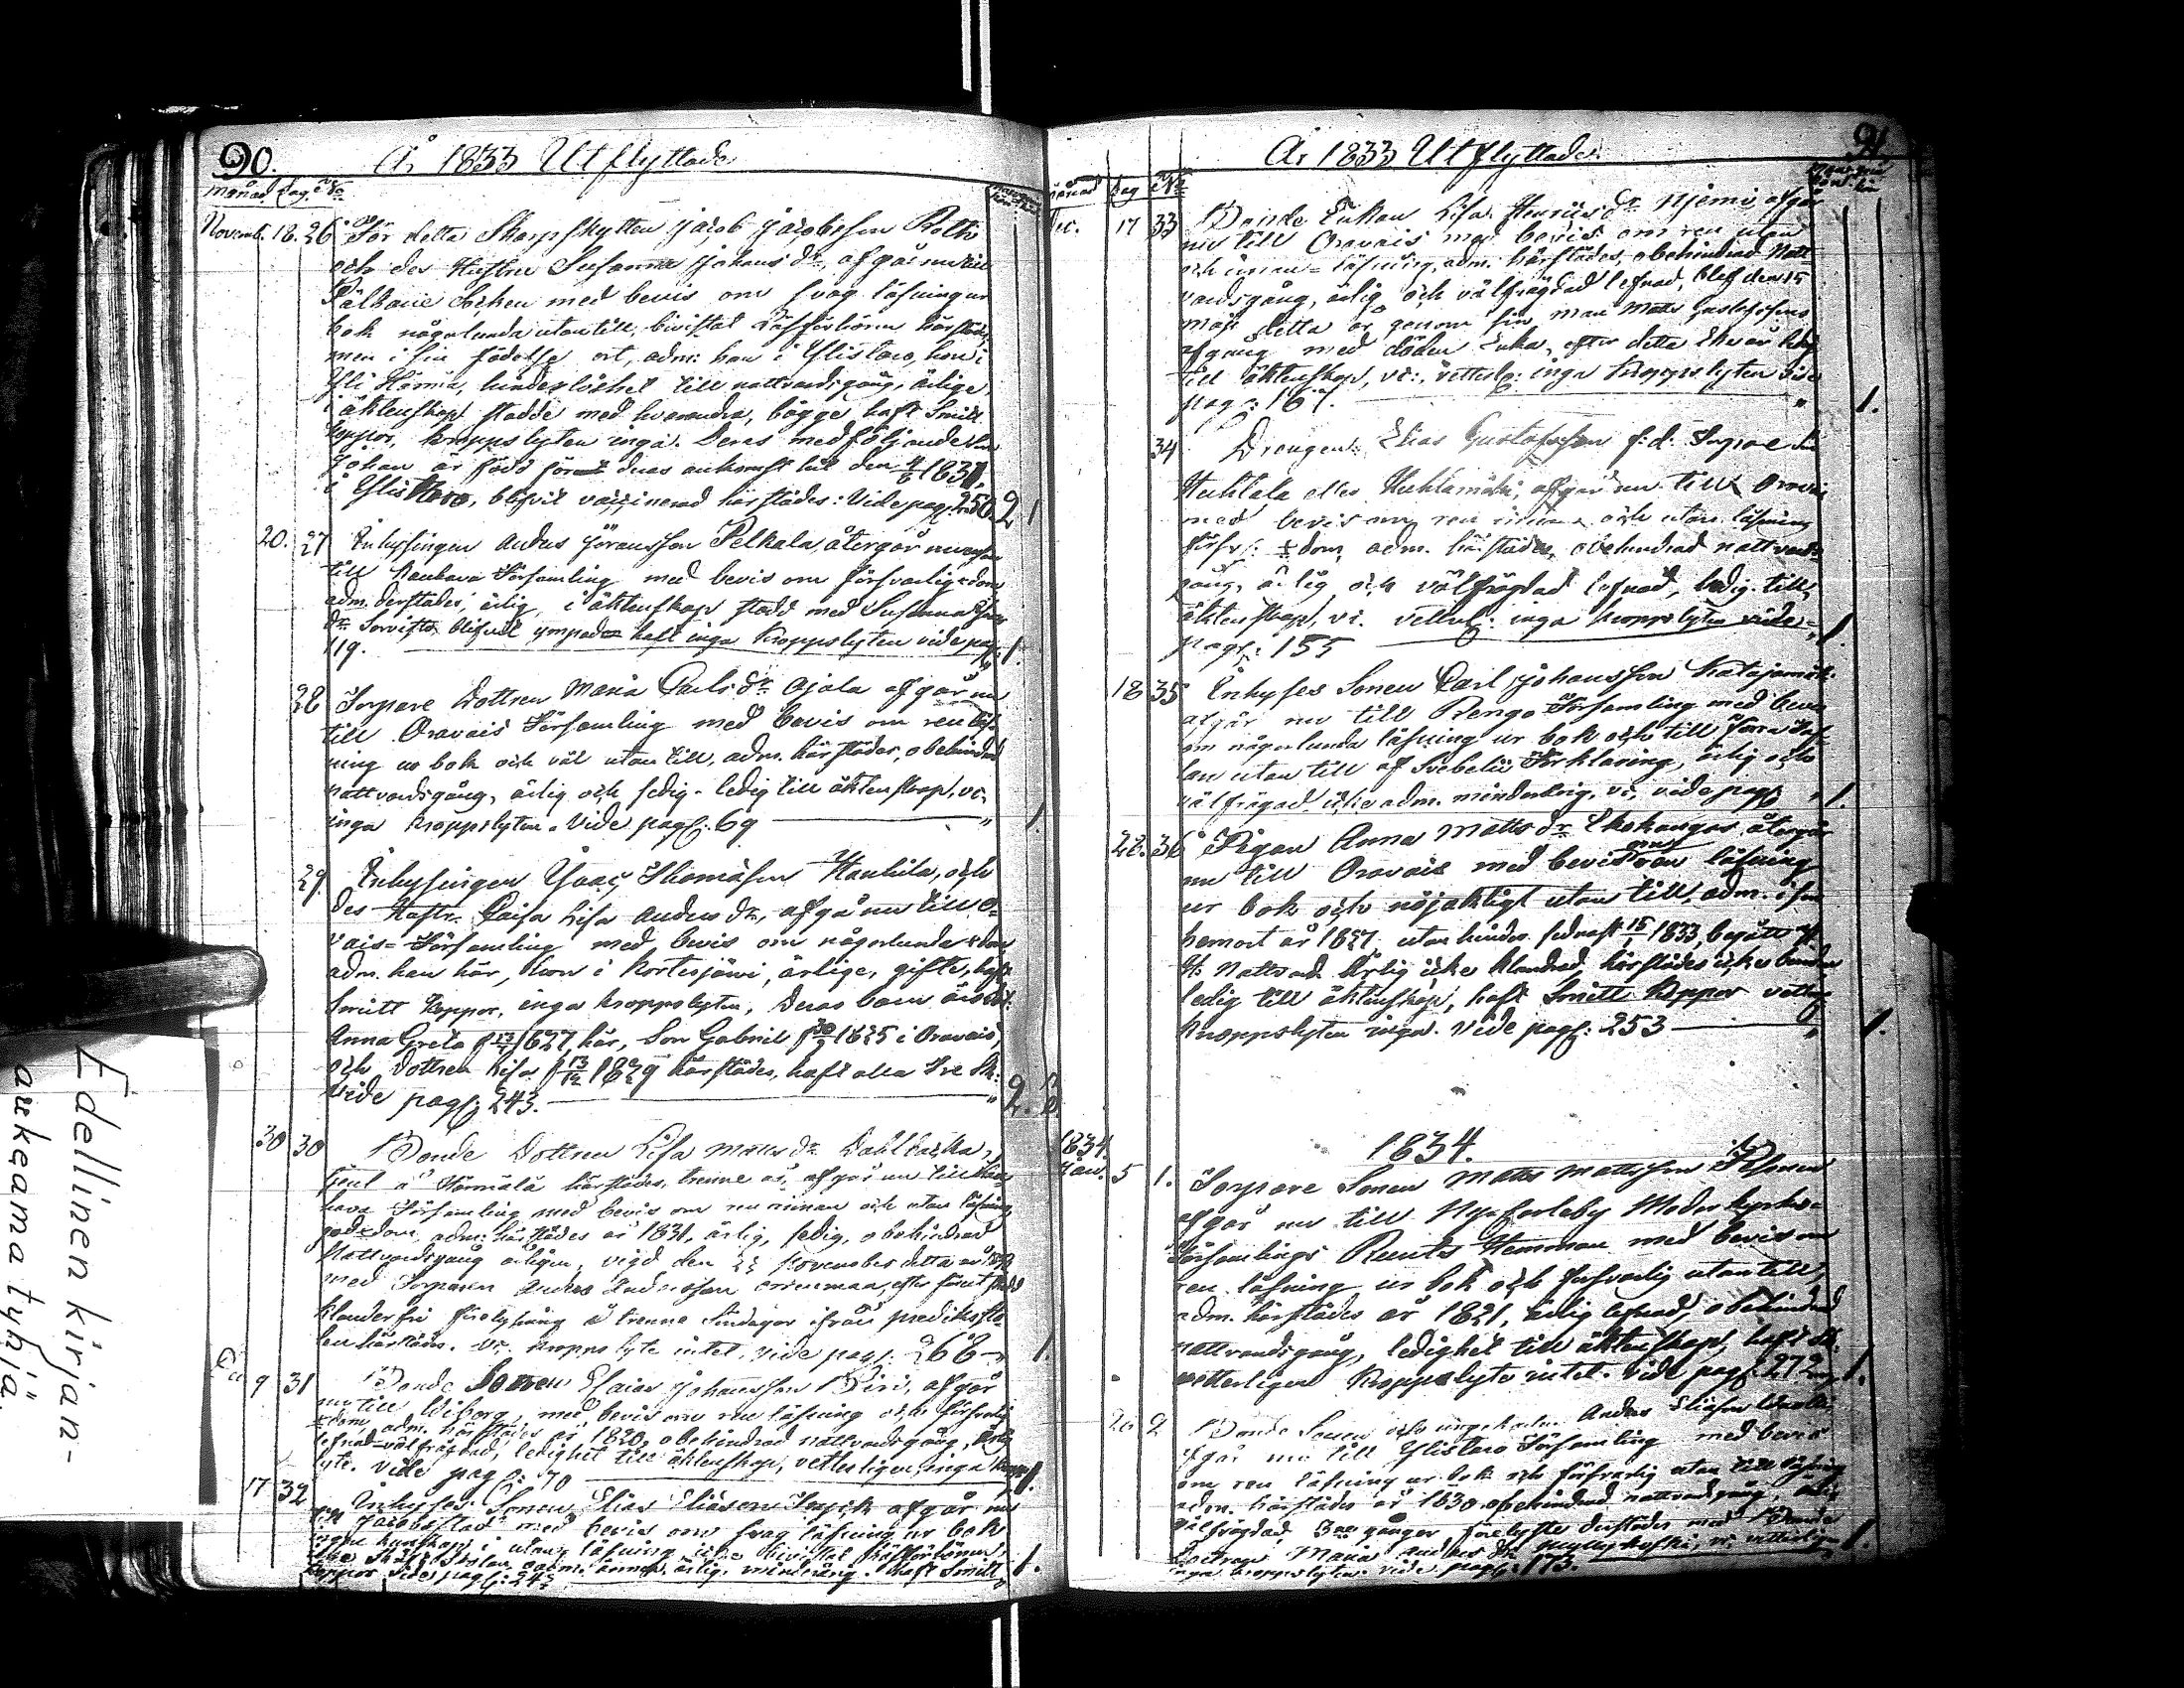 90. År 1833 Utflyttade
Månad. Dag. No
Novemb. 18. 26 För detta Skarpskytten Jacob Jacobsson Roth
och des Hustru Susanna Johans dr. afgår nu till
Pälkäne Socken med bevis om svag läsning ur
bok någorlunda utantill, bivistat Läsförhören härstädes
men i sin födelse ort, adm: han i Ylistaro, hon i
Yli Härmä, hinderlöshet till nattvardsgång, ärlige,
i äktenskap stadde med hvarandra, bägge haft Smitt
koppor, kroppslyten inga. Deras medföljande Son
Johan är född förut deras ankomst hit den 1831,
i Ylistaro, blifvit vaccinerad härstädes: Vide pag: 250. 2 1
20. 27 Inhysingen Anders Göransson Pelkala, återgår
till Kauhava Församling med bevis om försvarlig xdom
adm. derstädes, ärlig, i äktenskap stadd med Susanna
dr. blifvit ympad haft inga kroppslyten vide pag:
119. 1.
28 Torpare Dottren Maria Carls dr. Ojala afgår nu
till Oravais Församling med bevis om ren läs-
ning ur bok och väl utan till, adm. härstädes, obehindrad
nattvardsgång, ärlig och sedig. ledig till äktenskap, vc.
inga kroppslyten. Vide pag: 69 1.
29. Inhysingen Isaac Thomasson Hanhila, och
des Hustr. Caisa Lisa Anders dr., afgå nu till Ora-
vais Församling med bevis om någorlunda xdom
adm. han här, hon i Kortesjärvi, ärlige, gifte, haft
Smitt koppor, inga kroppslyten, Deras barn äro Dot.
Anna Greta f 1827, här, Son Gabriel f 1825 i Oravais,
och dottren Lisa f 13/12 1829 härstädes, haft alla tre
Vide pag: 243. 2.
30 30 Bonde Dottren Lisa Matts dr. Dahlbacka,
tjent å Härmälä härstädes, trenne år, afgår nu till Kau-
hava Församling med bevis om ren innan och utan läsning
god xdom, adm. härstädes år 1831, ärlig, sedig, obehindrad
Nattvardsgång årligen, vigd den November detta år
med Torparen Anders Andersson
klanderfri förelysning å trenne Söndagar ifrån prediksto-
len härstädes. vc. kropps lyte intet, vide pag: 268 1.
9 31 Bonde Sonen Esaias Johansson Biri, afgår
nu till Wiborg, med bevis om ren läsning och försvarlig
xdom, adm. härstädes år 1820, obehindrad nattvardsgång, ärlig
lefnad välfrägdad, ledighet till äktenskap, vetterligen inga kropps
lyte. Vide pag: 70 1.
17 32 Inhyses Sonen Elias Eliasson afgår nu
till Jacobstad med bevis om svag läsning ur bok
ingen kunskap i utan läsning icke bivistat Läsförhören
adm. ännu, ärlig, minderårig. haft Smitt
koppor Vide pag: 243 1.
År 1833 Utflyttade. 91
Månad Dag No
Dec. 17 33 Bonde Enkan Lisa Henrics dr. Njemi afgår
nu till Oravais med bevis om ren utan
och innan läsning, adm. härstädes, obehindrad Natt
vardsgång, ärlig och välfrägdad lefnad, blef den 15
Maji detta år genom sin man Matts Gustafssons
afgång med döden Enka, efter detta Ehe är ledig
till äktenskap, vc., vetterlig: inga kroppslyten vide
pag: 167. 1.
34 Drengen Elias Gustafsson f:d. Torpare
Huhtala eller Huhtamäki, afgår nu till Oravais
med bevis om ren innan och utan läsning
försv: xdom, adm. härstädes, obehindrad nattvards
gång, ärlig och välfrägdad lefnad, ledig till
äktenskap, vc. vetterl: inga kroppslyten vide
pag: 155 1
18 35 Inhyses Sonen Carl Johansson Katajamäk.
afgår nu till Rengo Församling med bevis
om någorlunda läsning ur bok och till
lan utan till af Svebelii Förklaring, ärlig och
välfrägdad icke adm. minderårig. vc. vide pag: 1.
28. 36 Pigan Anna Matts dr. Ekokangas återgår
nu till Oravais med bevis om ren läsning
ur bok och nöjaktigt utan till, adm. i sin
hemort år 1827, utan hinder sednast 15/ 1833, begått
H: Nattvard. Ärlig icke klandrad, härstädes icke bunden
ledig till äktenskap, haft Smitt koppor vetterl:
kroppslyten inga. Vide pag: 253 1.
1834.
1834.
Jan. 5 1. Torpare Sonen Matts Mattsson
afgår nu till Nykarleby Moderkyrko-
Församlings Hemman med bevis om
ren läsning ur bok och försvarlig utantill,
adm. härstädes år 1821, ärlig lefnad, obehindrad
nattvardsgång, ledighet till äktenskap, haft
vetterligen kroppslyte intet. Vide pag: 272 1.
20 2 Bonde Sonen och ungekarlen Anders Eliasson
afgår nu till Ylistaro Församling med bevis
om ren läsning ur bok och försvarlig utan till läsning
adm. härstädes år 1830 obehindrad nattvardsgång ärlig
välfrägdad, 3ne gånger förelyste derstädes med Bonde
Dottren Maria Anders dr. Myllykoski, vc. vetterligen
inga kroppslyten. Vide pag: 173. 1.
Edellinen kirjan-
aukeama tyhjä.